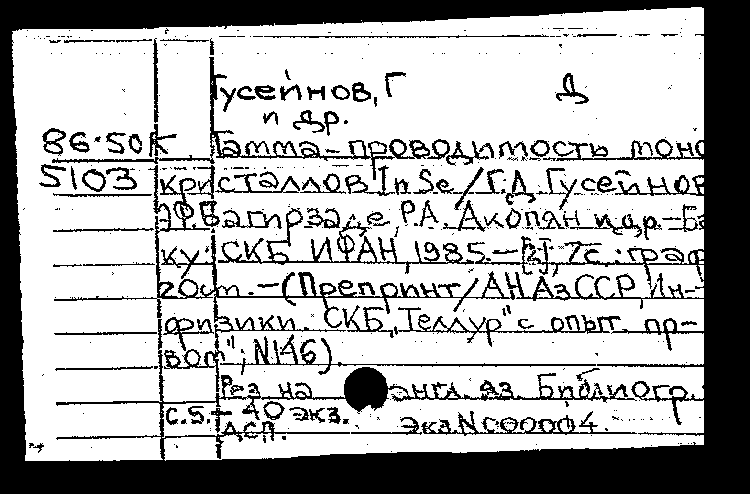 Гусейнов, Г Д
и др.
86-50К Гамма-проводимость моно
5103 кристаллов InSe/Г.Д. Гусейнов
Э.Ф. Багирзаде, Р.А. Акопян и др.-Ба
ку: СКБ ИФАН, 1985.-[2], 7с.:граф
20см.-(Препринт/АН АзССР, Ин-
физики. СКБ "Теллур" с опыт. пр-
вом"; N146).
Рез на англ. яз. Библиогр.
с.5.- 40 экз.
ДСП. Экз.NС00004.